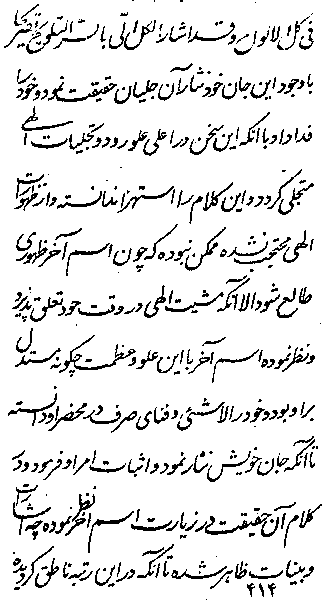 فی کل الالواح و قد اشار الکل الی باب سر التلویح تفسیرا
باوجود این جان خود نثار آن جلیان حقیقت نمود و خود را
فدا داد با آنکه این سخن در اعلی علو رود و تجلیات الهی
متجلی گردد و این کلام را استهزا ندانسته و از ظهورات
الهی محتجب نشده ممکن نبوده که چون اسم آخر ظهوری
طالع شود الا آنکه مشیت الهی در وقت خود تعلق پذیرد
و نظر نموده اسم آخر با این علو و عظمت چگونه مستدل
بر او بوده و خود را لاشئی و فنای صرف در محضر او دانسته
تا آنکه جان خویش نثار نمود و اثبات امر او فرمود و در
کلام آن حقیقت در زیارت اسم آخر نظر نموده چه اشارات
و بینات ظاهر شده تا آنکه در این رتبه ناطق گردیده
۴۱۴